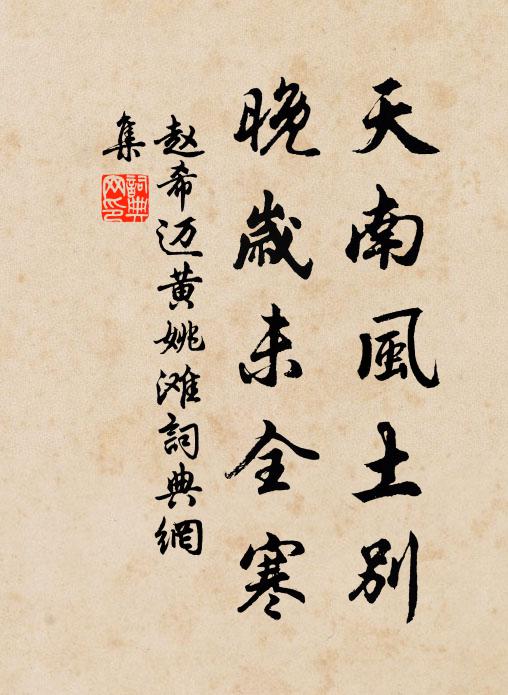 天南風土別
晚歲未全寒
赵希迈黄姚滩詞典網
集
詞典
网印